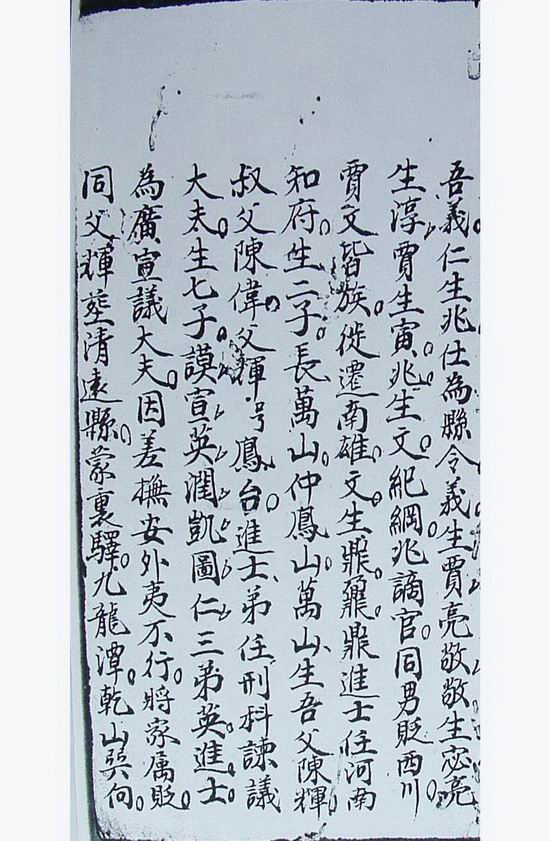 吾義仁生兆仕為縣令義生賈亮敬敬生宓亮
生淳賈生寅兆生文紀綱兆謫官同男貶西川
賈文皆族徙遷南雄文生鼎鼐鼎進士任河南
知府生二子長萬山仲鳳山萬山生吾父陳輝
叔父陳偉父輝号鳳台進士弟任刑科諫議
大夫生七子謨宣英潤凱圖仁三弟英進士
為廣宣議大夫因差撫安外夷不行將家属貶
同父輝塟清遠縣蒙裏驛九龍潭乾山巽向